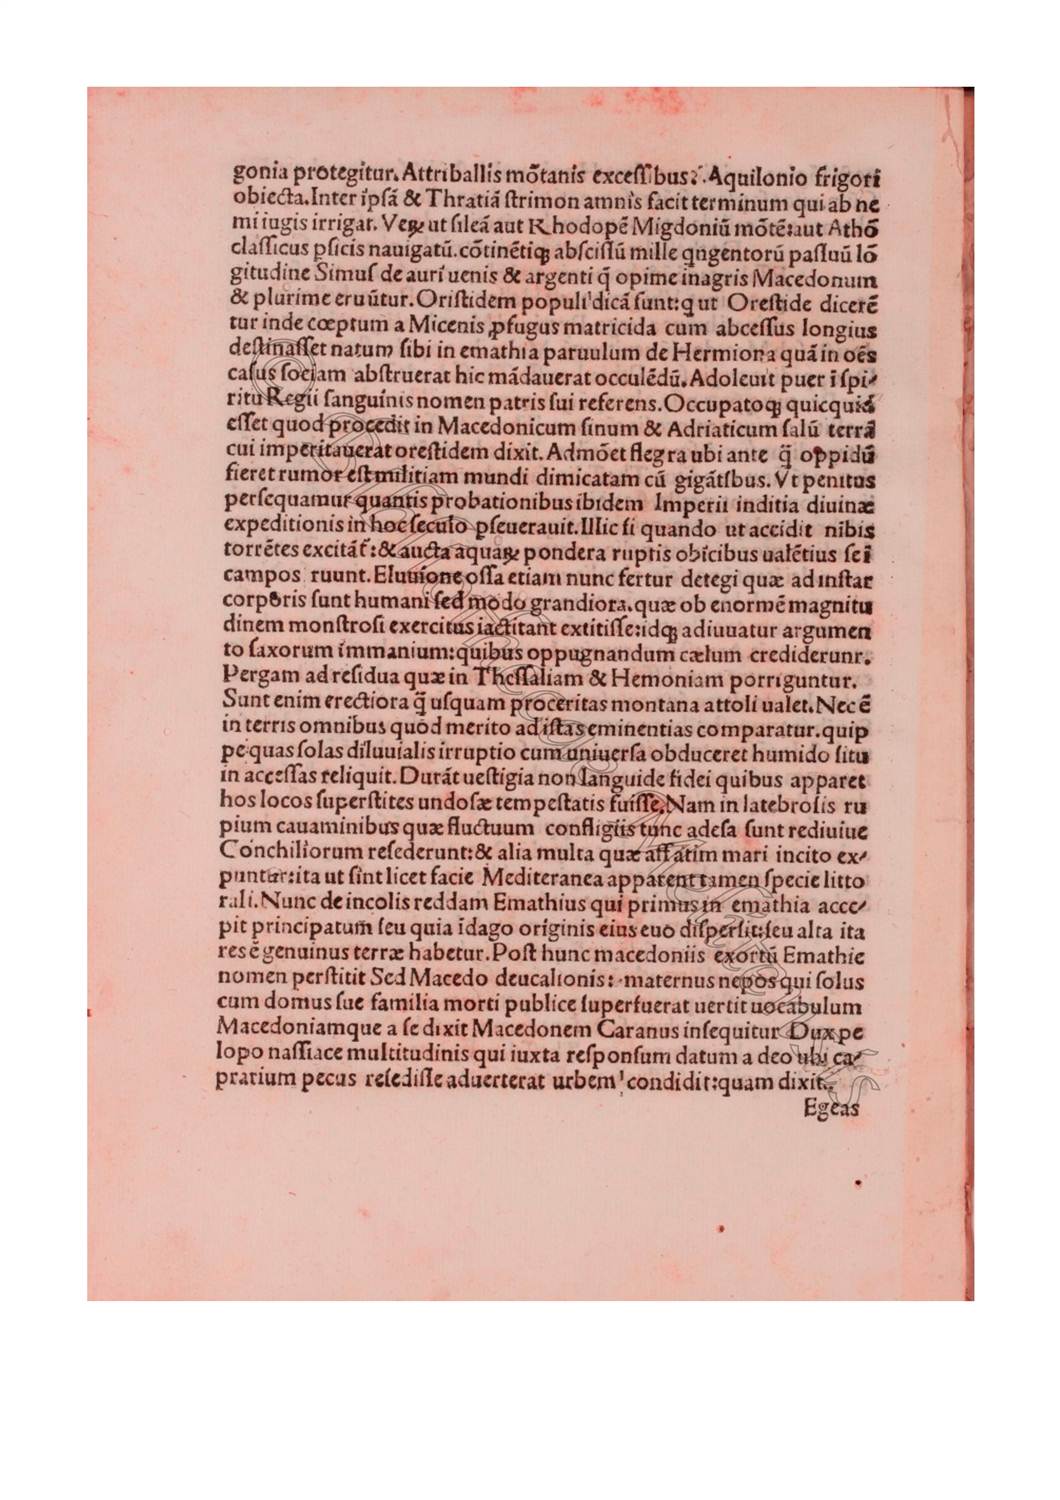 gonia protegitur. Attriballis mõtanis exceſſibus: Aquilonio frigori
obiecta. Inter ipſã & Thratiã ſtrimon amnis facit terminum qui ab ne
mi iugis irrigat. Veꝝ ut ſileã aut Rhodopẽ Migdoniũ mõtẽ: aut Athõ
claſſicus pſicis nauigatũ. cõtinẽtiqꝫ abſciſſũ mille qngentorũ paſſuũ lõ
gitudine Simuſ de auri uenis & argenti q̃ opime inagris Macedonum
& plurime eruũtur. Oriſtidem populi dicã ſunt: q ut Oreſtide dicerẽ
tur inde cœptum a Micenis ꝓfugus matricida cum abceſſus longius
deſtinaſſet natum ſibi in emathia paruulum de Hermiona quã in oẽs
caſus ſociam abſtruerat hic mãdauerat occulẽdũ. Adoleuit puer ĩ ſpi⸗
ritu Regii ſanguinis nomen patris ſui referens. Occupatoqꝫ quicquid
eſſet quod procedit in Macedonicum ſinum & Adriaticum ſalũ terrã
cui imperitauerat oreſtidem dixit. Admõet flegra ubi ante q̃ oppidũ
fieret rumor eſt militiam mundi dimicatam cũ gigãtſbus. Vt penitus
perſequamur quantis probationibus ibidem Imperii inditia diuinæ
expeditionis in hoc ſeculo pſeuerauit. Illic ſi quando ut accidit nĩbis
torrẽtes excitãt̃: & aucta aquaꝝ pondera ruptis obicibus ualẽtius ſe ĩ
campos ruunt. Eluuione oſſa etiam nunc fertur detegi quæ ad inſtar
corporis ſunt humani ſed modo grandiora. quæ ob enormẽ magnitu
dinem monſtroſi exercitus iactitant extitiſſe: idqꝫ adiuuatur argumen
to ſaxorum immanium: quibus oppugnandum cælum crediderunr.
Pergam ad reſidua quæ in Theſſaliam & Hemoniam porriguntur.
Sunt enim erectiora q̃ uſquam proceritas montana attoli ualet. Nec ẽ
in terris omnibus quod merito ad iſtas eminentias comparatur. quip
pe quas ſolas diluuialis irruptio cum uniuerſa obduceret humido ſitu
in acceſſas reliquit. Durãt ueſtigia non languide fidei quibus apparet
hos locos ſuperſtites undoſæ tempeſtatis fuiſſe. Nam in latebroſis ru
pium cauaminibus quæ fluctuum confligiis tunc adeſa ſunt rediuiue
Conchiliorum reſederunt: & alia multa quæ affatim mari incito ex⸗
puntur: ita ut ſint licet facie Mediteranea apparent tamen ſpecie litto
rali. Nunc de incolis reddam Emathius qui primus in emathia acce⸗
pit principatum ſeu quia idago originis eius euo diſperſit: ſeu alta ita
res ẽ genuinus terræ habetur. Poſt hunc macedoniis exortũ Emathie
nomen perſtitit Sed Macedo deucalionis: maternus nepos qui ſolus
cum domus ſue familia morti publice ſuperfuerat uertit uocabulum
Macedoniamque a ſe dixit Macedonem Caranus inſequitur Dux pe
lopo naſſiace multitudinis qui iuxta reſponſum datum a deo ubi ca⸗
prarium pecus reſediſſe aduerterat urbem condidit: quam dixit.
Egeas